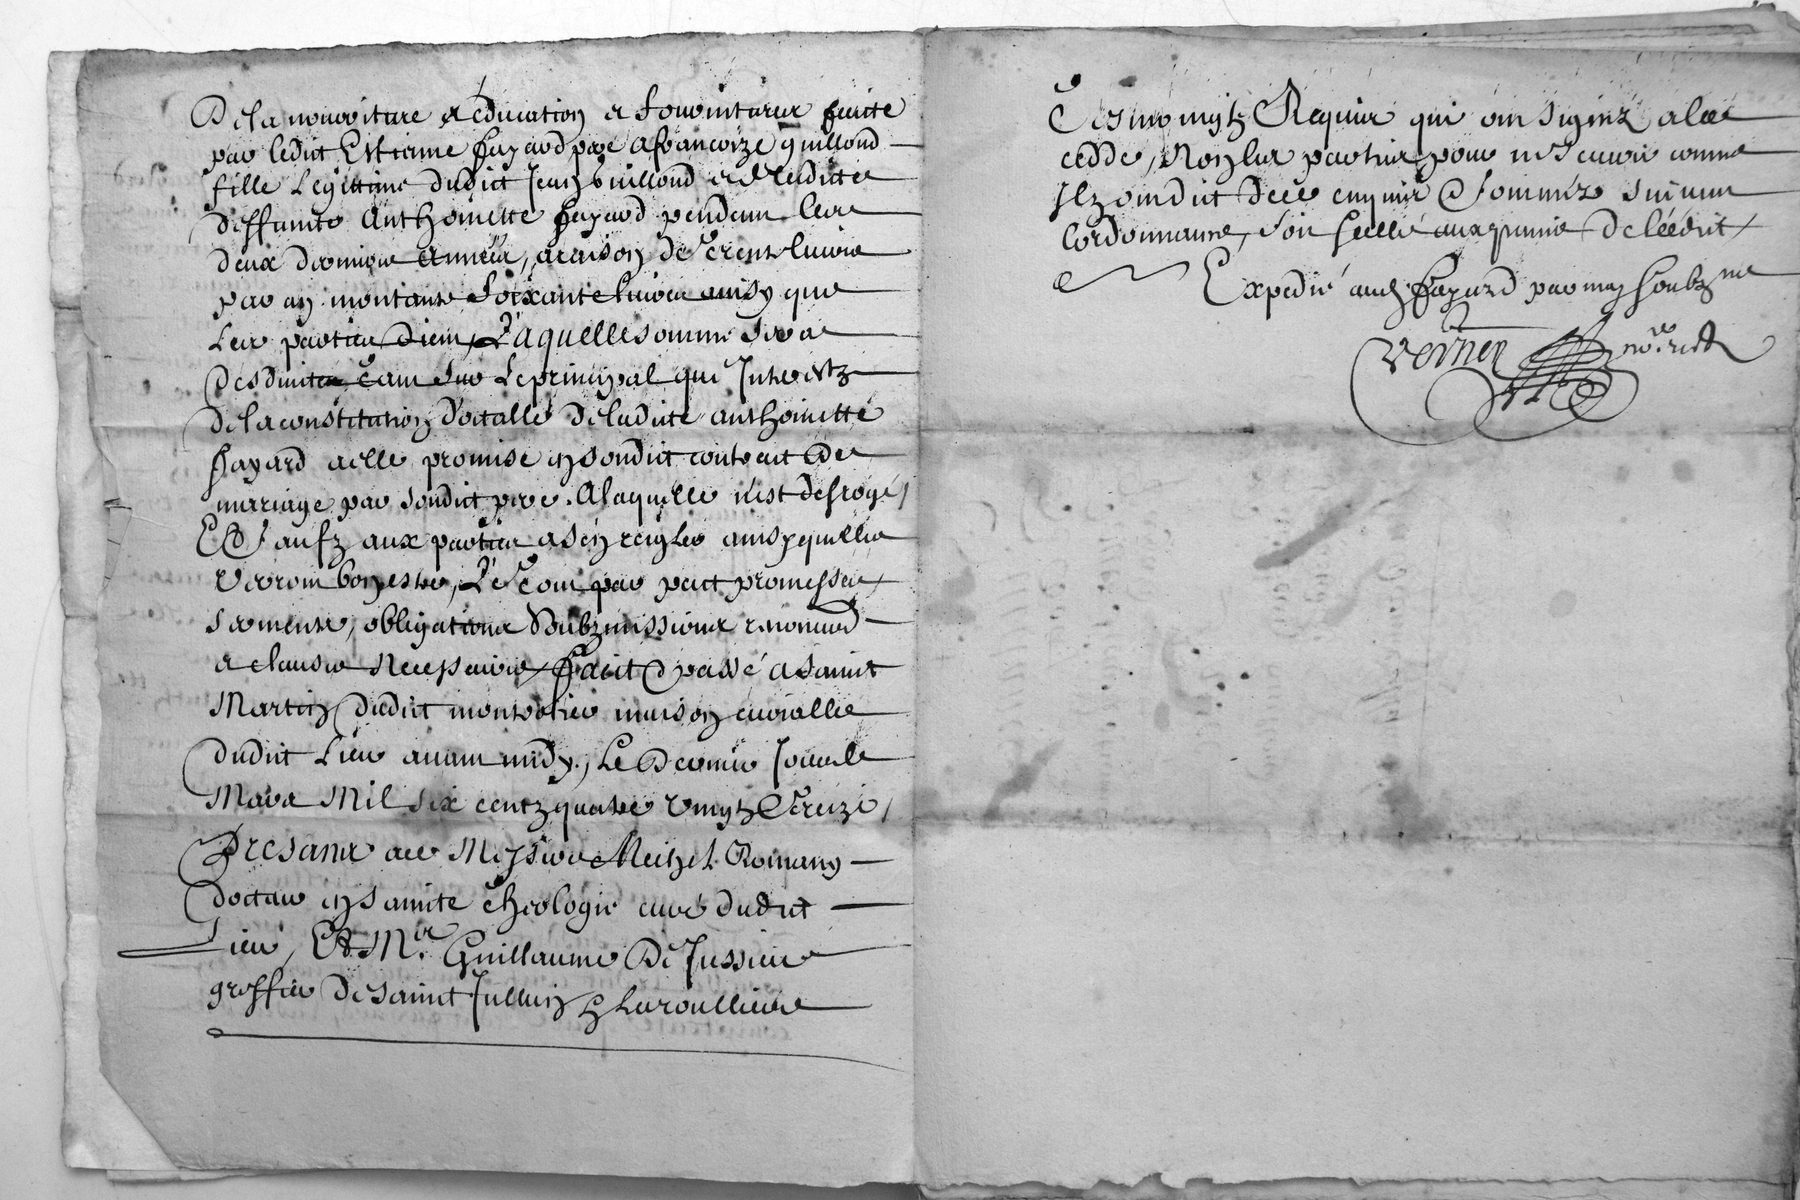 De la nourriture et education et fournitures faicte
par ledict Estienne fayard pere a francoize guilliond
fille legittime dudict Jean Guilliond et de ladicte
deffunte Anthoinette fayard pendant leurs
deux dernieres Annees, a raison de trente livres
par an montants soixante livres ainsy que
les parties dient, Laquelle somme sera
desduitte tant sur le principal que Interestz
de la constitution doctalle de ladicte anthoinette
fayard a elle promise en sondict contract de
mariage par sondict pere. A laquelle n'est desrogé,
Et Saufz aux parties a sen reigler ainsy quelles
verront bon estre, Le tout par pact promesses
serments, obligations Soubzmissions renonciaons
et clauses necessaires, faict et passé a Saint
Martin dudict maison curialle
dudict Lieu avant midy, Le dernier Jour de
Mars Mil six centz quatre vingtz treize,
Presants ace Messire Michel Romany
docteur en Sainte theologie curé dudict
Lieu, Et Mre Guillaume De Jussieu
greffier de Saint Jullien Laroulliere
Tesmoingtz Requis qui ont signéz a la
cedde, non les parties pour ne scavoir comme
Ilz ont dict de ce enquis et sommez suivant
l'ordonnance, soit scellé aux peines de l'édict,
Expedié audict fayard par moy soubzne
Vernen nore